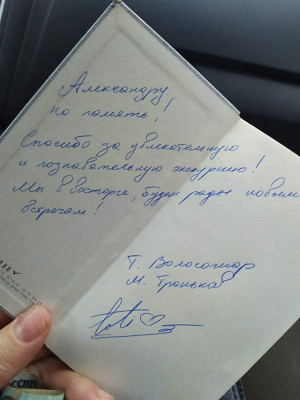 Александру
на память!
Спасибо за увлекательную
и познавательную экскурсию!
Мы в восторге, будем рады новым
встречам!
Т. Волосожар
М. Траньков